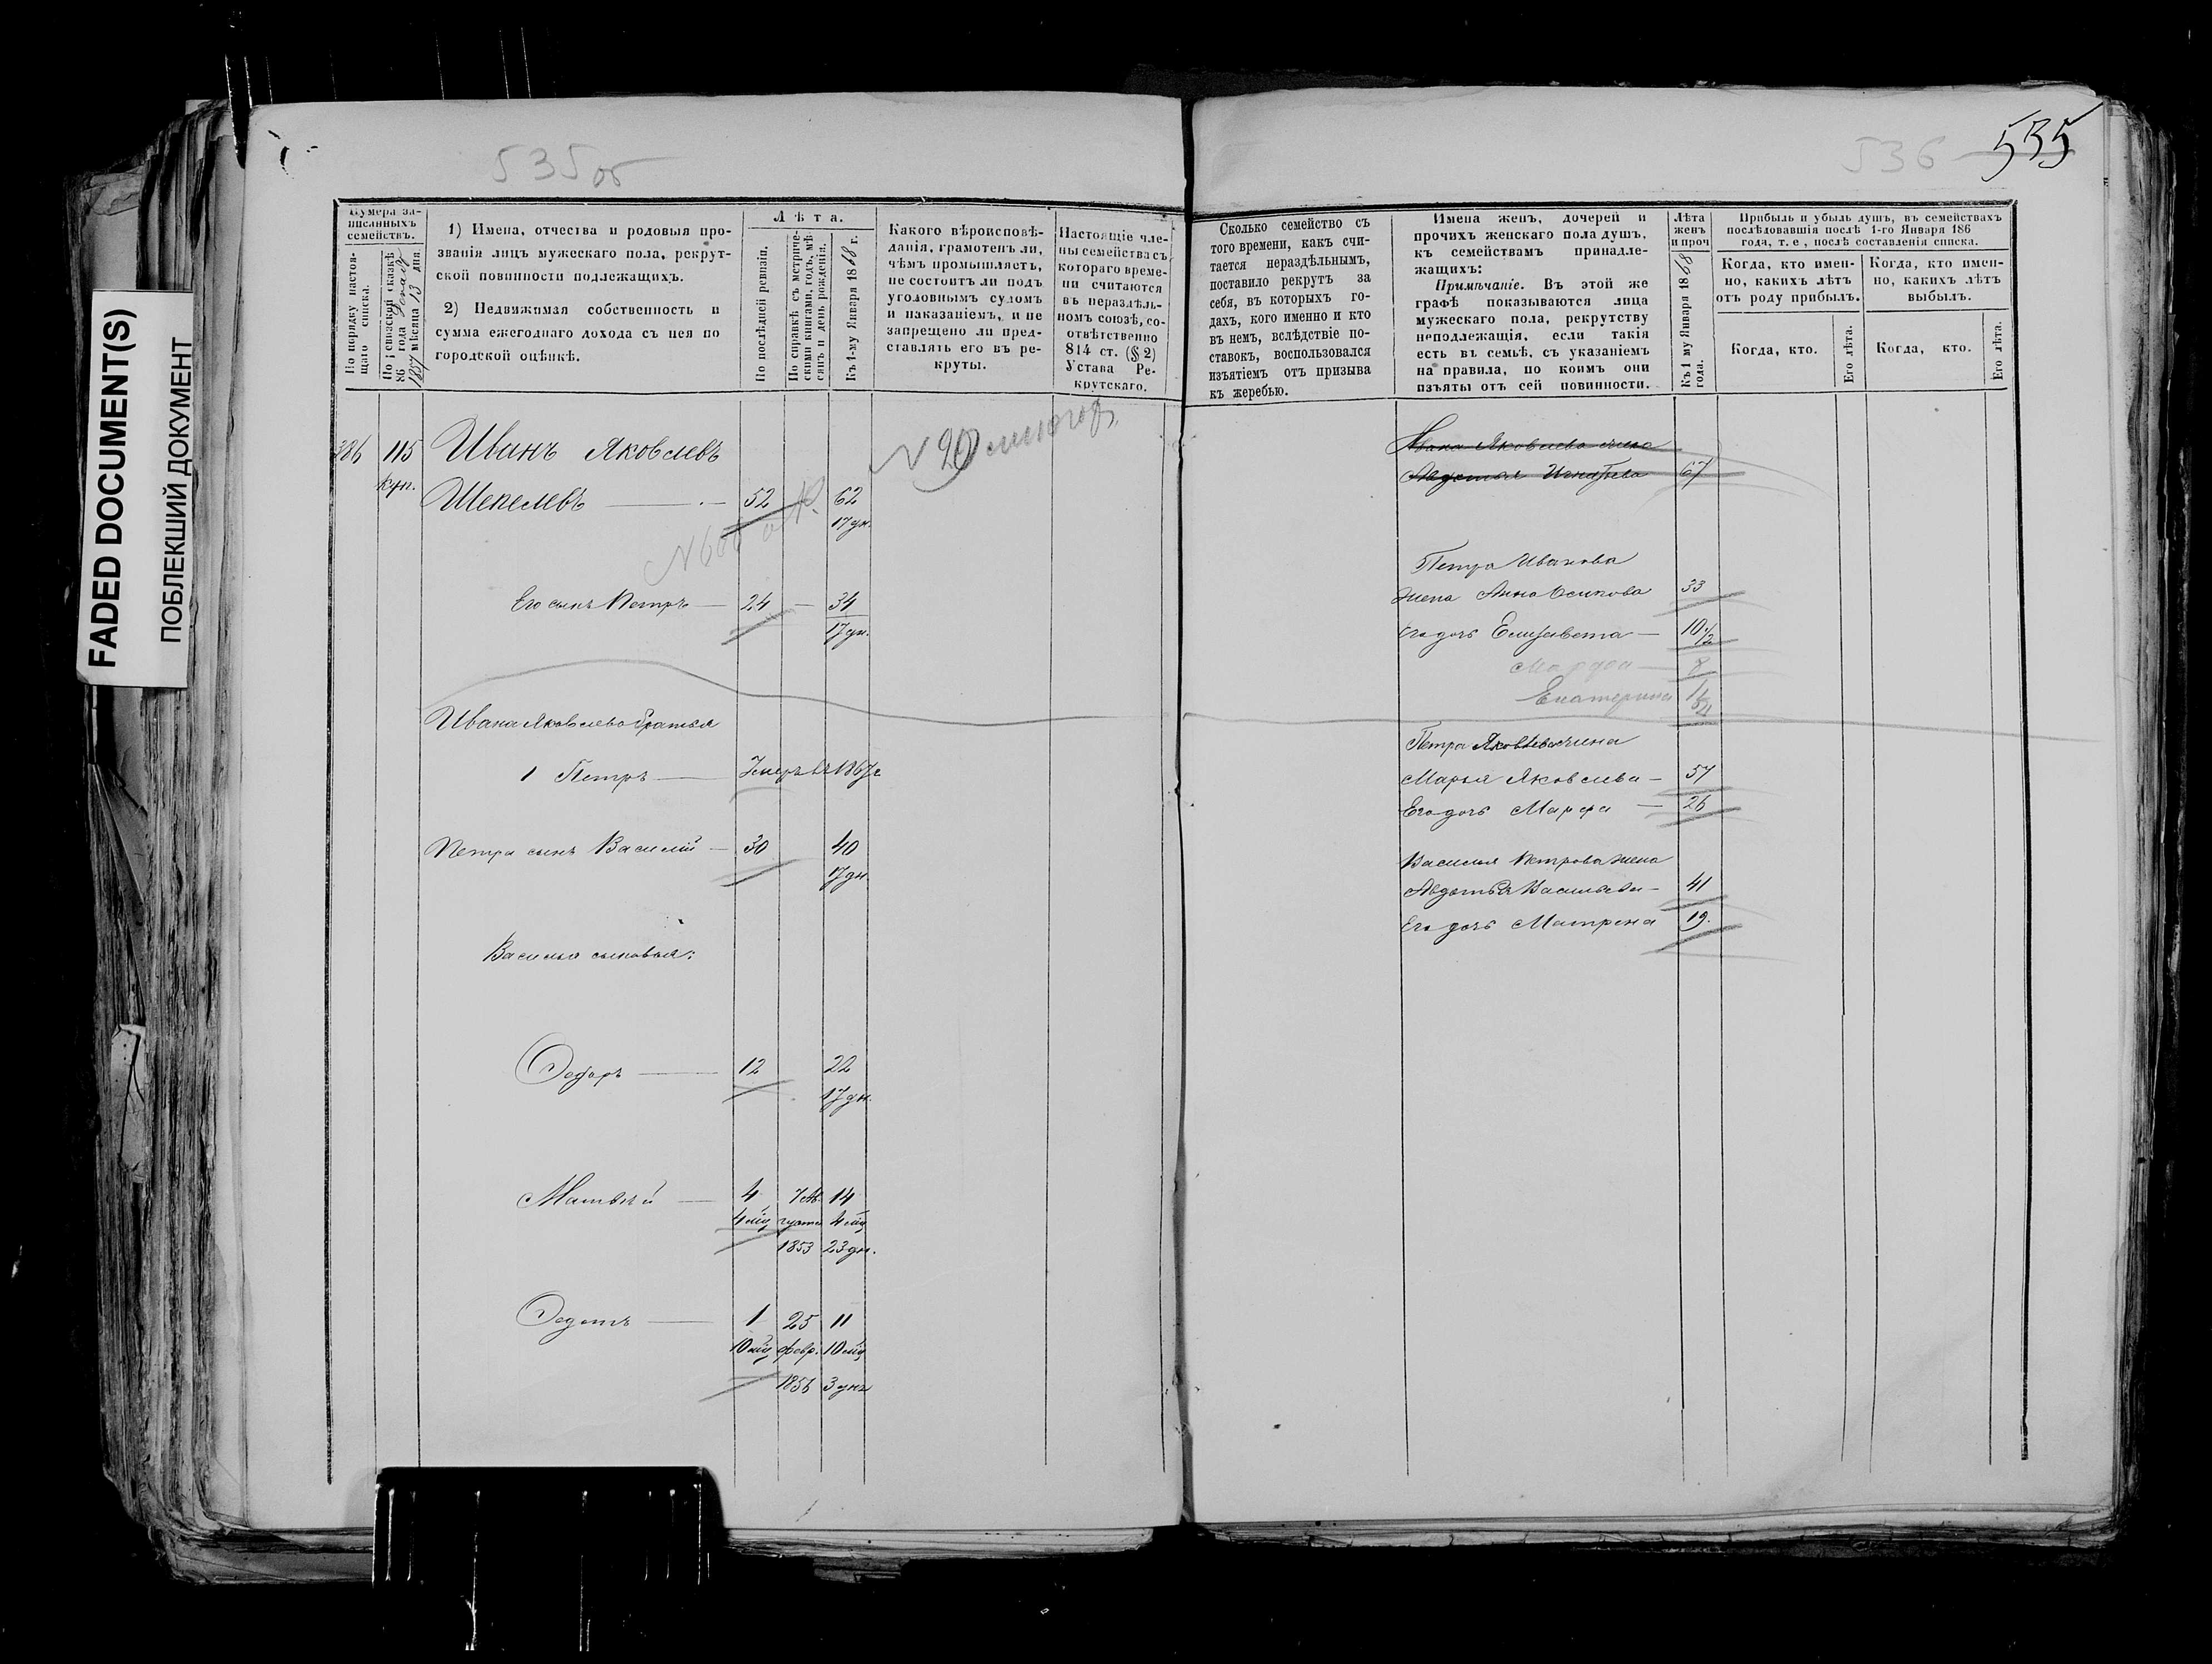 FADED DOCUMENT(S)
ПОБЛЕКШИЙ ДОКУМЕНТ
535об
Нумера за-
писанныхъ
семействъ.
По порядку настоя-
щаго списка.
1) Имена, отчества и родовыя про-
званія лицъ мужескаго пола, рекрут-
ской повинности подлежащихъ.
2) Недвижимая собственность и
сумма ежегоднаго дохода съ нея по
городской оцѣнкѣ.
Лѣта.
По послѣдней ревизіи.
По справкѣ съ метриче-
скими книгами, годъ, мѣ-
сяцъ и день рожденія.
Къ 1-му Января 1868 г.
Какого вѣроисповѣ-
данія, грамотенъ ли,
чѣмъ промышляетъ,
не состоитъ ли подъ
уголовнымъ судомъ
и наказаніемъ, и не
запрещено ли пред-
ставлять его въ ре-
круты.
Настоящіе чле-
ны семейства съ
котораго време-
ни считаются
въ нераздѣль-
номъ союзѣ, со-
отвѣтственно
814 ст. (§ 2)
Устава Ре-
крутскаго.
386 115 Иванъ Яковлевъ
куп.
Шепелевъ — 52 62
17 дн.
Его сынъ Петръ — 24 — 34
17 дн.
Ивана Яковлева братья
1 Петръ — Умеръ въ 1867 г
Петра сынъ Василій — 30 40
17 дн.
Василья сыновья:
Ѳедоръ — 12 22
17 дн.
Матвѣй — 4 7 Ав- 14
4 мѣц густа 4 мѣц
1853 23 дн.
Ѳедотъ — 1 25 11
10 мѣц февр. 10 мѣц
1856 3 дня
536 535
Сколько семейство съ
того времени, какъ счи-
тается нераздѣльнымъ,
поставило рекрутъ за
себя, въ которыхъ го-
дахъ, кого именно и кто
въ немъ, вслѣдствіе по-
ставокъ, воспользовался
изъятіемъ отъ призыва
къ жеребью.
Имена женъ, дочерей и
прочихъ женскаго пола душъ,
къ семействамъ принадле-
жащихъ:
Примѣчаніе. Въ этой же
графѣ показываются лица
мужескаго пола, рекрутству
неподлежащія, если такія
есть въ семьѣ, съ указаніемъ
на правила, по коимъ они
изъяты отъ сей повинности.
Лѣта
женъ
и проч
Къ 1 му Января 1868
года.
Прибыль и убыль душъ, въ семействахъ
послѣдовавшія послѣ 1-го Января 186
года, т. е., послѣ составленія списка.
Когда, кто имен-
но, какихъ лѣтъ
отъ роду прибылъ.
Когда, кто имен-
но, какихъ лѣтъ
выбылъ.
Когда, кто.
Его лѣта.
Когда, кто.
Его лѣта.
Ивана Яковлева жена
Авдотья Игнатьева 67
Петра Иванова
жена Анна Осипова 33
Его дочь Елизавета — 10 1/2
Марфа — 8
Екатерина
Петра Яковлева жена
Марья Яковлева — 57
Его дочь Марфа — 26
Василья Петрова жена
Авдотья Васильева — 41
Его дочь Матрена 19.